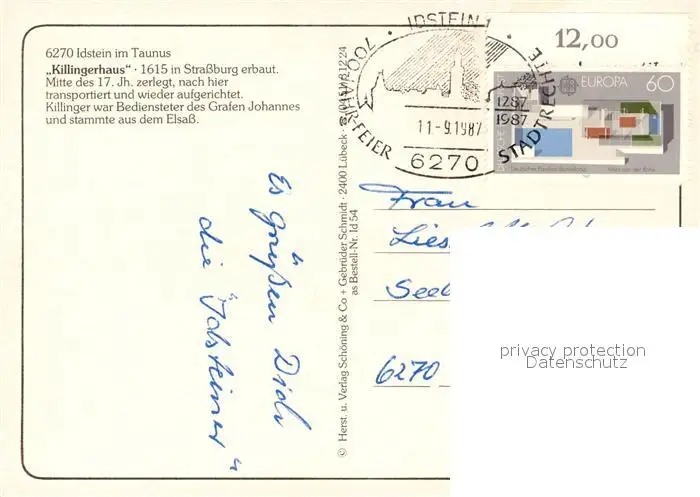 6270 Idstein im Taunus
„Killingerhaus" · 1615 in Straßburg erbaut.
Mitte des 17. Jh. zerlegt, nach hier
transportiert und wieder aufgerichtet.
Killinger war Bediensteter des Grafen Johannes
und stammte aus dem Elsaß.
Es grüßen Dich
die „Idsteiner"
© Herst. u. Verlag Schöning & Co + Gebrüder Schmidt · 2400 Lübeck
as Bestell-Nr. Id 54
· IDSTEIN 1 ·
700-JAHR-FEIER
STADTRECHTE
1287
1987
11-9.1987
6270
12,00
EUROPA 60
Frau
6270
privacy protection
Datenschutz